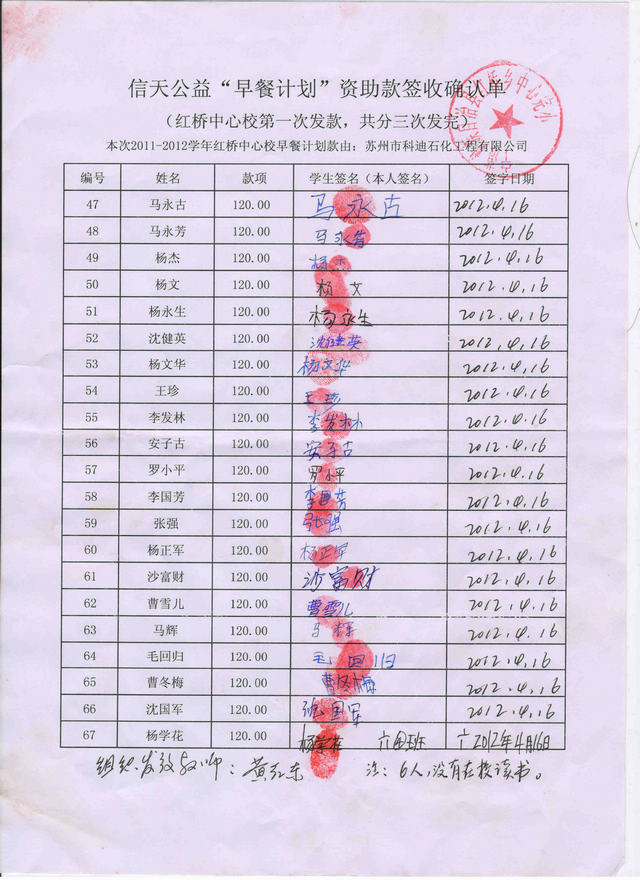 信天公益“早餐计划”资助款签收确认单
（红桥中心校第一次发款，共分三次发完）
本次2011-2012学年红桥中心校早餐计划款由：苏州市科迪石化工程有限公司
编号 姓名 款项 学生签名（本人签名） 签字日期
47 马永古 120.00 马永古 2012.4.16
48 马永芳 120.00 马永芳 2012.4.16
49 杨杰 120.00 杨杰 2012.4.16
50 杨文 120.00 杨文 2012.4.16
51 杨永生 120.00 杨永生 2012.4.16
52 沈健英 120.00 沈健英 2012.4.16
53 杨文华 120.00 杨文华 2012.4.16
54 王珍 120.00 王珍 2012.4.16
55 李发林 120.00 李发林 2012.4.16
56 安子古 120.00 安子古 2012.4.16
57 罗小平 120.00 罗小平 2012.4.16
58 李国芳 120.00 李国芳 2012.4.16
59 张强 120.00 张强 2012.4.16
60 杨正军 120.00 杨正军 2012.4.16
61 沙富财 120.00 沙富财 2012.4.16
62 曹雪儿 120.00 曹雪儿 2012.4.16
63 马辉 120.00 马辉 2012.4.16
64 毛回归 120.00 毛回归 2012.4.16
65 曹冬梅 120.00 曹冬梅 2012.4.16
66 沈国军 120.00 沈国军 2012.4.16
67 杨学花 120.00 杨学花 2012年4月16日
组织发放教师：黄红东 注：6人没有在校读书。